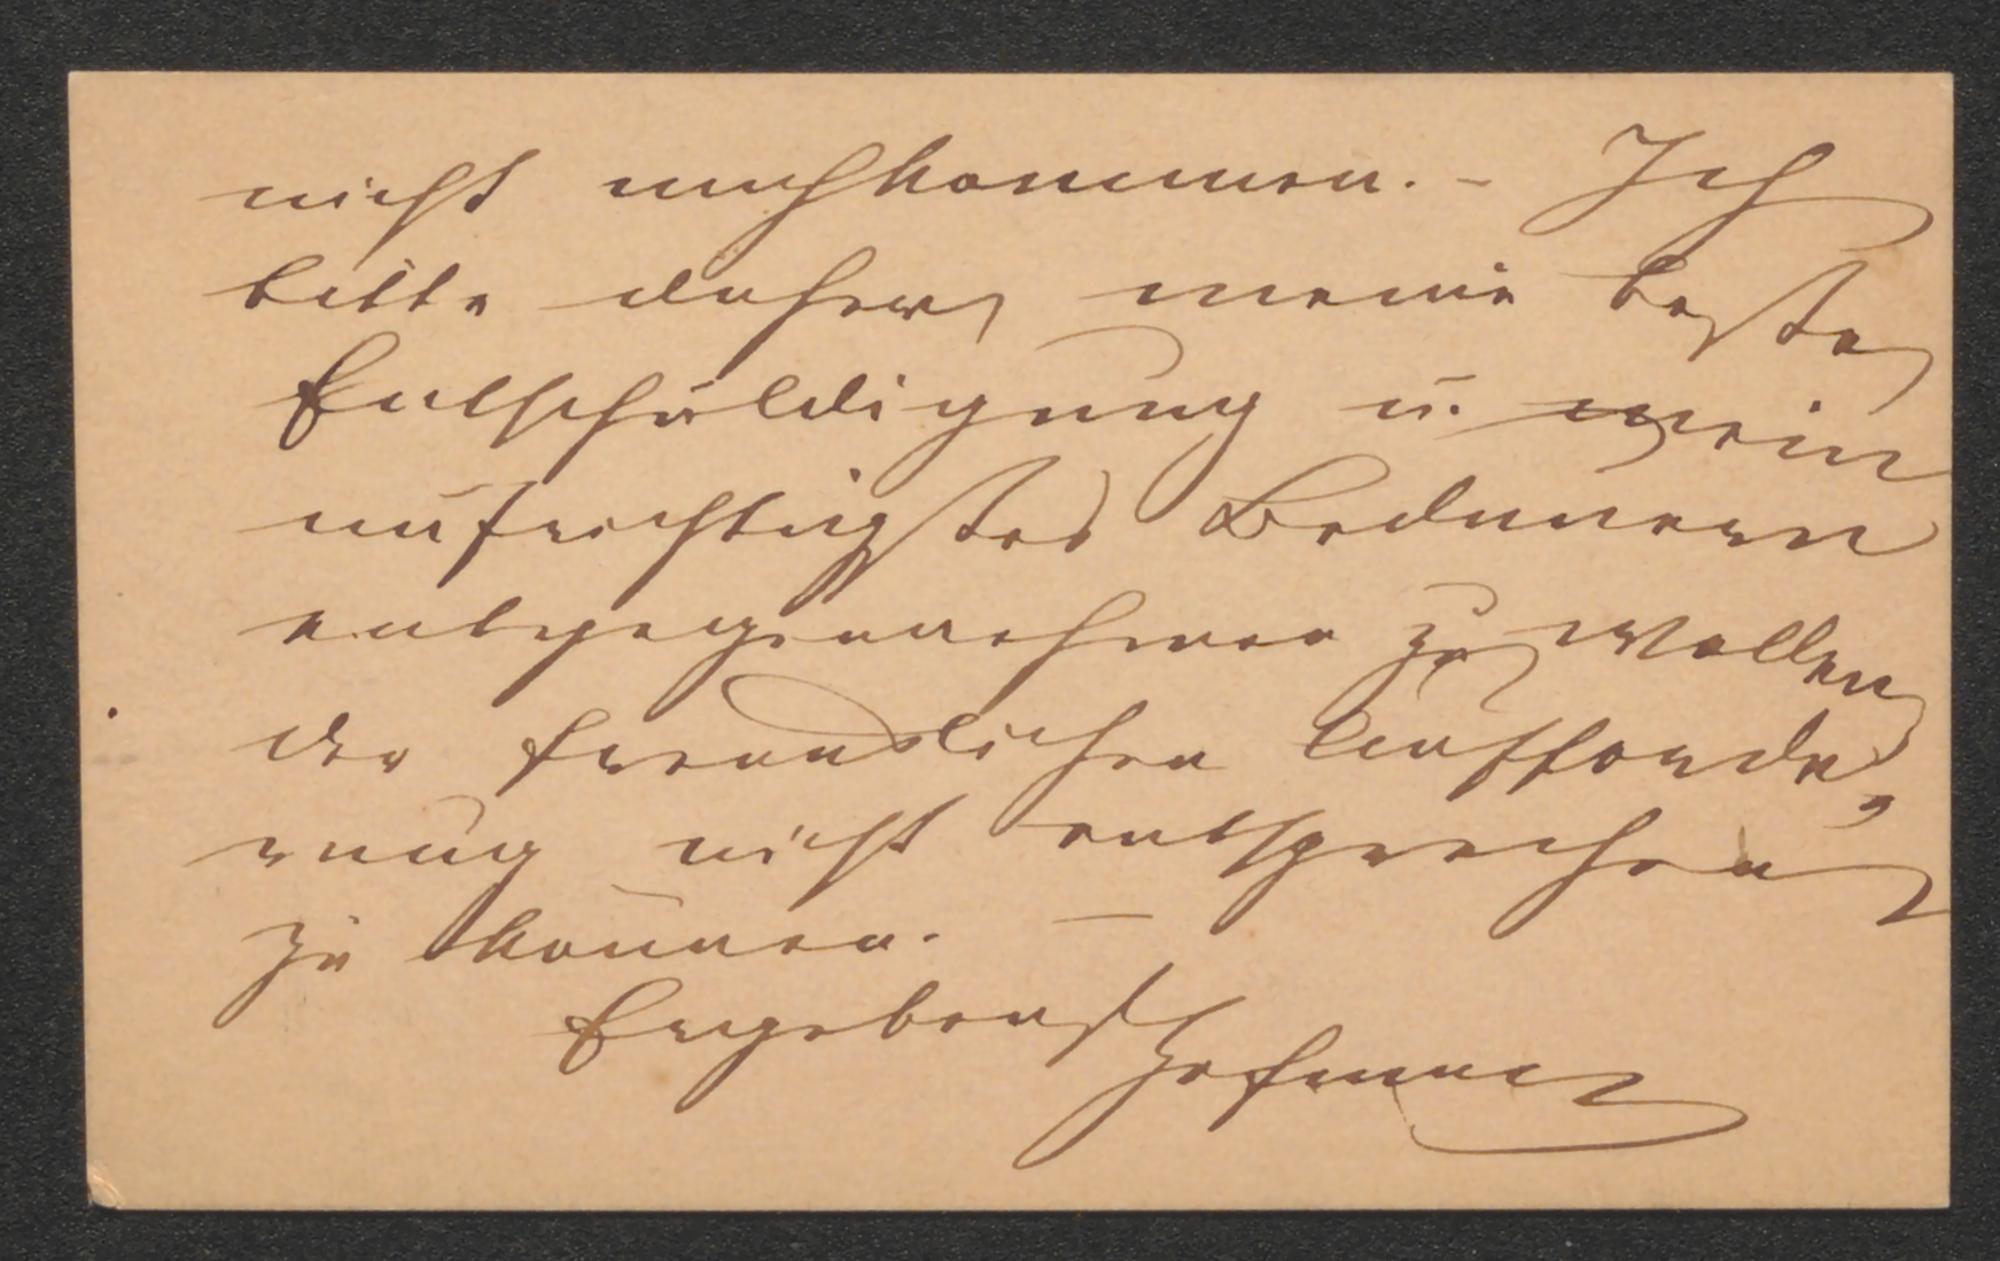 nicht nachkommen. – Ich
bitte daher, meine beste
Entschuldigung u. mein
aufrichtigstes Bedauern
entgegennehmen zu wollen
der freundlichen Aufforde-
rung nicht entsprechen
zu können. –
Ergebenst